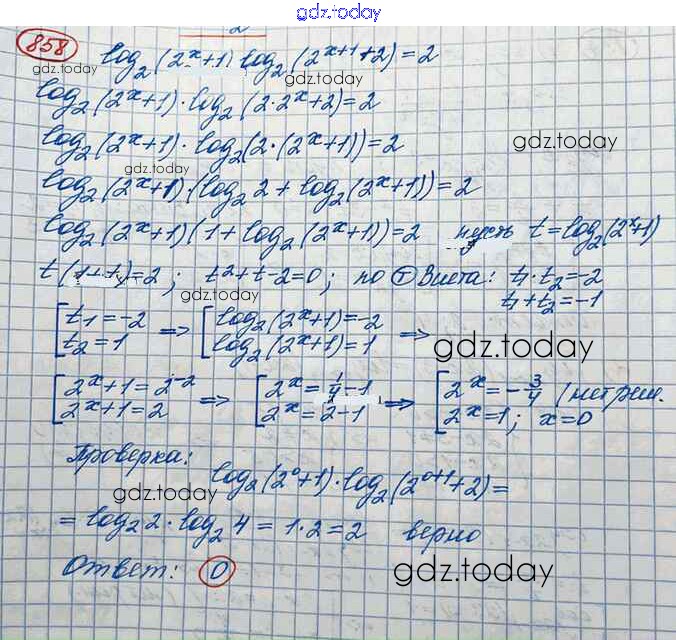 gdz.today
2
858 log₂(2ˣ+1) log₂(2ˣ⁺¹+2)=2
gdz.today
log₂(2ˣ+1)·log₂(2·2ˣ+2)=2
log₂(2ˣ+1)·log₂(2·(2ˣ+1))=2
gdz.today
gdz.today
log₂(2ˣ+1)·(log₂2+log₂(2ˣ+1))=2
log₂(2ˣ+1)(1+log₂(2ˣ+1))=2 пусть t=log₂(2ˣ+1)
t(1+t)=2; t²+t-2=0; по Т Виета: t₁·t₂=-2
gdz.today
t₁+t₂=-1
[t₁=-2 => [log₂(2ˣ+1)=-2 =>
t₂=1 log₂(2ˣ+1)=1
gdz.today
[2ˣ+1=2⁻² => [2ˣ=1/4-1 => [2ˣ=-3/4 (нет реш.
2ˣ+1=2 2ˣ=2-1 2ˣ=1; x=0
gdz.today
Проверка:
log₂(2⁰+1)·log₂(2⁰⁺¹+2)=
gdz.today
=log₂2·log₂4=1·2=2 верно
Ответ: 0
gdz.today